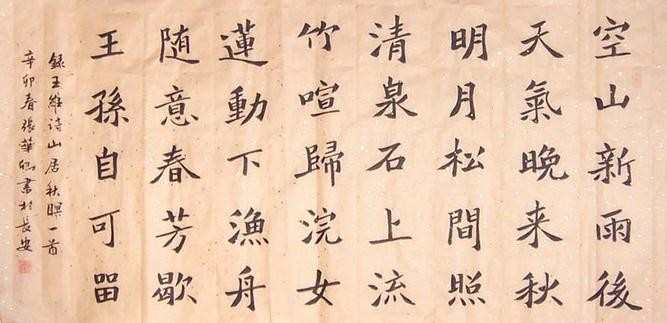 空山新雨後
天氣晚来秋
明月松間照
清泉石上流
竹喧歸浣女
蓮動下漁舟
随意春芳歇
王孫自可留
録王維诗山居秋暝一首
辛卯春張華書於長安